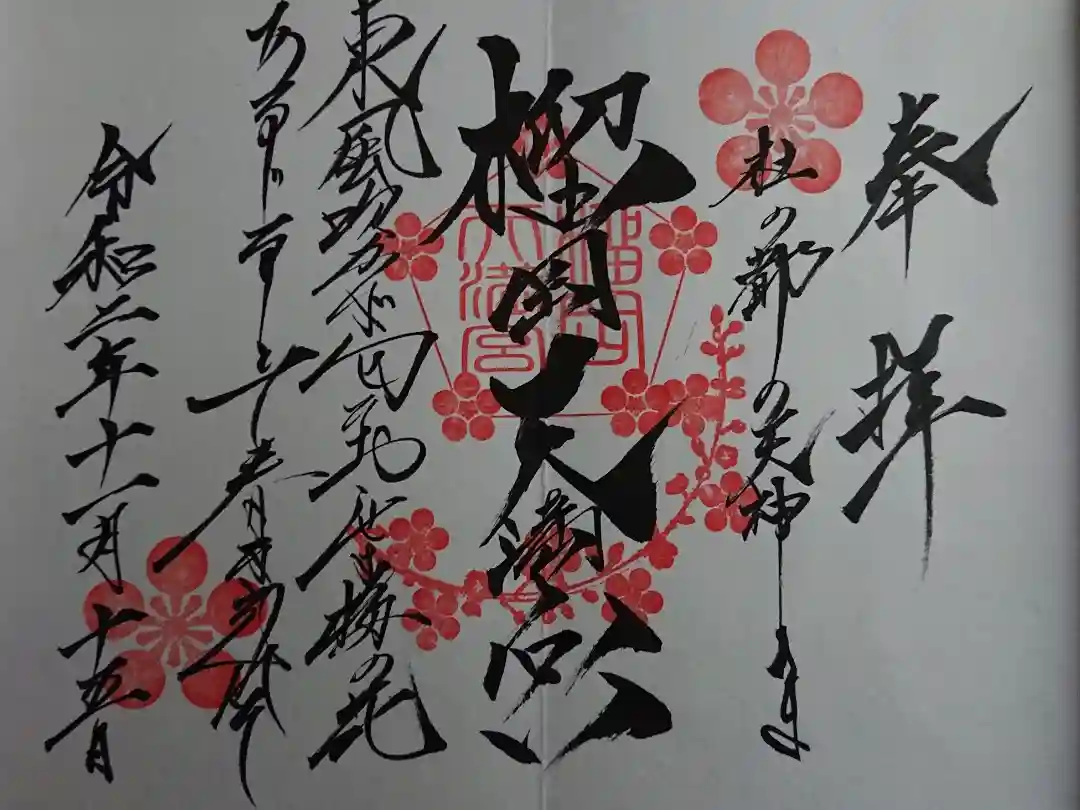 奉拝
杜の都の天神さま
榴岡天満宮
榴岡
天満宮
東風吹かば匂ひおこせよ梅の花
あるじなしとて春
令和二年十一月十五日